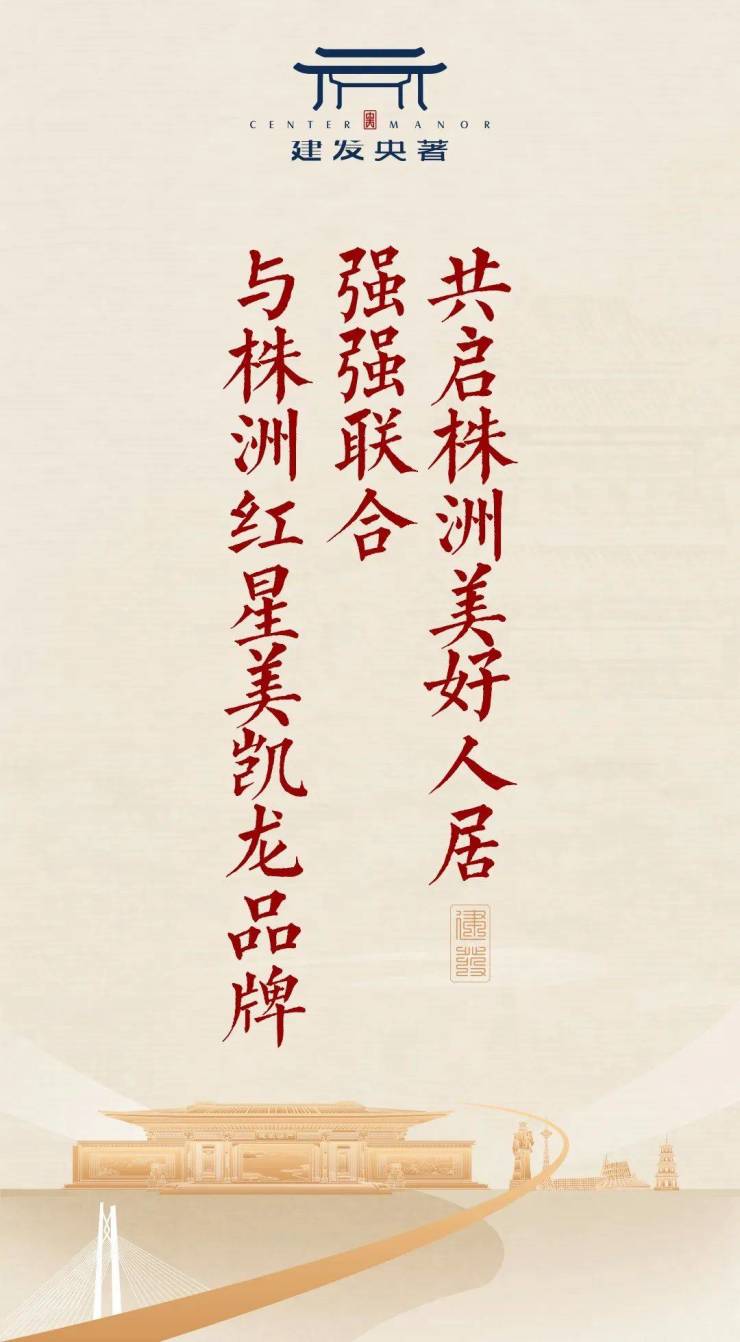 CENTER MANOR
建发央著
与株洲红星美凯龙品牌
强强联合
共启株洲美好人居
建发